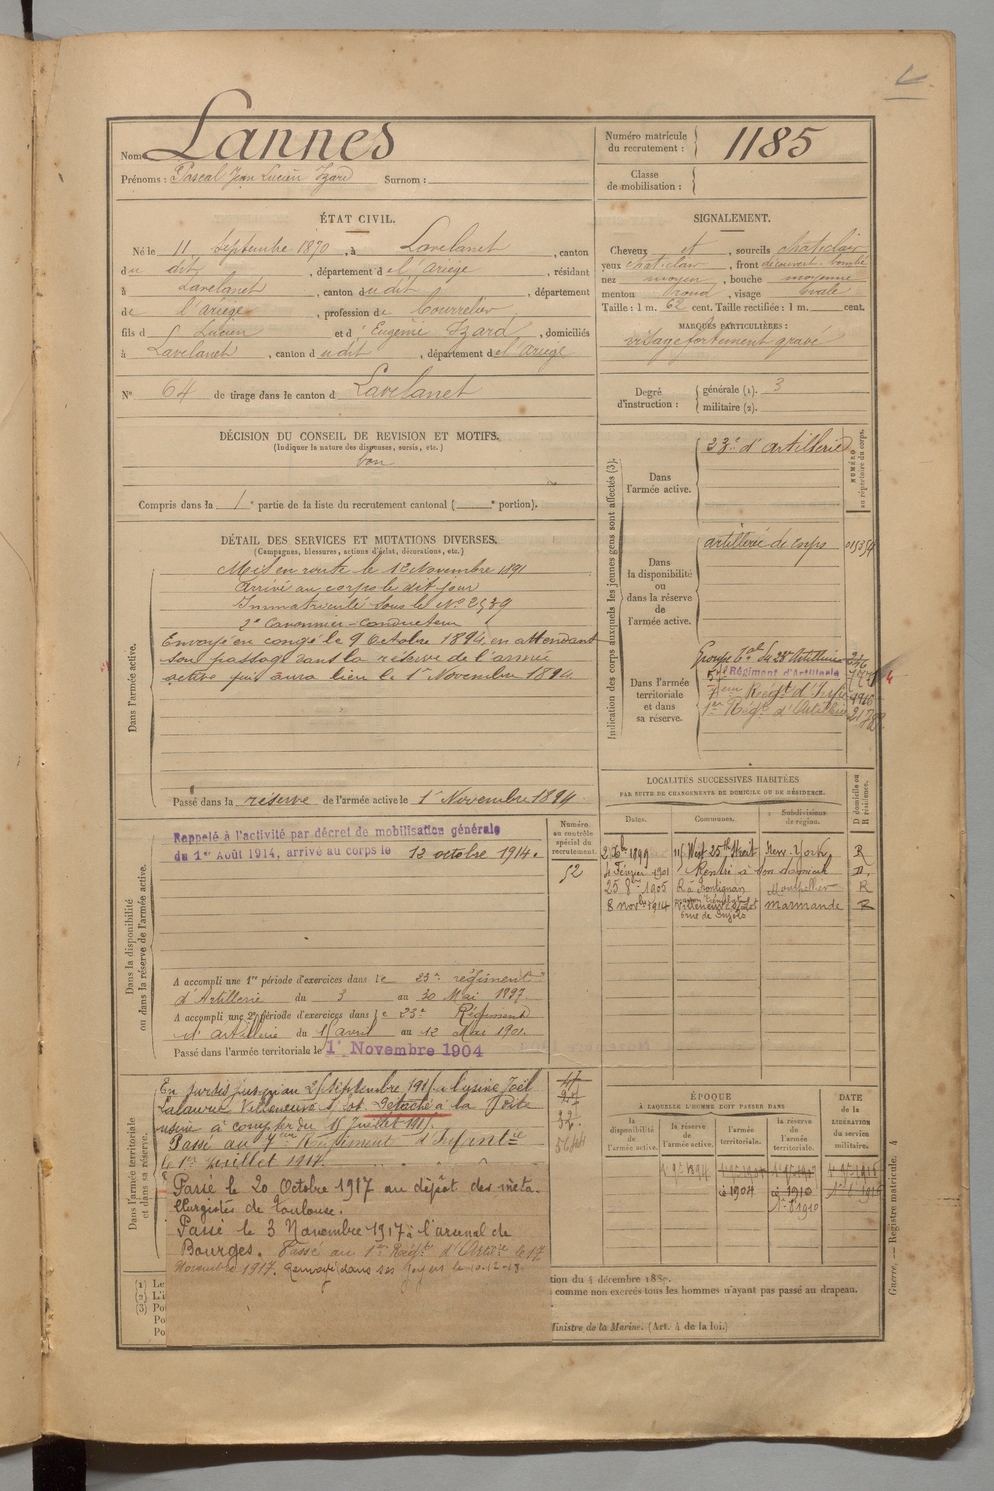 Nom Lannes
Prénoms : Pascal Jean Lucien Izard Surnom :
Numéro matricule du recrutement : 1185
Classe de mobilisation :
ÉTAT CIVIL.
Né le 11 Septembre 1870, à Lavelanet, canton
du dit, département de l'Ariège, résidant
à Lavelanet, canton dudit, département
de l'Ariège, profession de bourrelier
fils de Lucien et d'Eugénie Izard, domiciliés
à Lavelanet, canton dudit, département de l'Ariège
N° 64 de tirage dans le canton d Lavelanet
SIGNALEMENT.
Cheveux et, sourcils chat. clair
yeux chat. clair, front découvert bombé
nez moyen, bouche moyenne
menton rond, visage ovale
Taille : 1 m. 62 cent. Taille rectifiée : 1 m. cent.
MARQUES PARTICULIÈRES :
visage fortement gravé
Degré d'instruction : générale (1). 3
militaire (2).
DÉCISION DU CONSEIL DE REVISION ET MOTIFS.
(Indiquer la nature des dispenses, sursis, etc.)
bon
Compris dans la 1e partie de la liste du recrutement cantonal ( e portion).
DÉTAIL DES SERVICES ET MUTATIONS DIVERSES.
(Campagnes, blessures, actions d'éclat, décorations, etc.)
Dans l'armée active.
Mis en route le 12 Novembre 1891
Arrivé au corps le dit jour
Immatriculé sous le No 2539
2e Canonnier-conducteur
Envoyé en congé le 9 Octobre 1894, en attendant
son passage dans la réserve de l'armée
active qui aura lieu le 1er Novembre 1894.
Passé dans la réserve de l'armée active le 1er Novembre 1894
Indication des corps auxquels les jeunes gens sont affectés (3).
NUMÉRO au répertoire du corps.
Dans l'armée active.
23e d'artillerie
Dans la disponibilité ou dans la réserve de l'armée active.
artillerie de corps
Dans l'armée territoriale et dans sa réserve.
Groupe tal du 23e Artillerie
57e Régiment d'Artillerie
7ème Régt d'Infie
1er Régt d'Artillerie
LOCALITÉS SUCCESSIVES HABITÉES
PAR SUITE DE CHANGEMENTS DE DOMICILE OU DE RÉSIDENCE.
Dates. Communes. Subdivisions de région. D domicile ou R résidence.
1899 West 25th Street New-York R
4 Février 1901 Rentré à son domicile D.
25 8bre 1905 R à Frontignan Montpellier R
8 novbre 1914 Villeneuve s/Lot Marmande R
Dans la disponibilité ou dans la réserve de l'armée active.
Rappelé à l'activité par décret de mobilisation générale
du 1er Août 1914, arrivé au corps le 13 octobre 1914.
Numéro au contrôle spécial du recrutement.
52
A accompli une 1re période d'exercices dans le 23e régiment
d'Artillerie du 3 au 30 Mai 1897
A accompli une 2e période d'exercices dans le 23e Régiment
d'artillerie du 15 avril au 12 Mai 1901
Passé dans l'armée territoriale le 1er Novembre 1904
Dans l'armée territoriale et dans sa réserve.
En sursis jusqu'au 25 Septembre 1915 à l'usine
Villeneuve s/ Lot. Détaché à la
usine à compter du 15 Juillet 1915.
Passé au 7ème Régiment d'Infantie
le 1er Juillet 1917.
Passé le 20 Octobre 1917 au dépôt des méta-
llurgistes de Toulouse.
Passé le 3 Novembre 1917 à l'arsenal de
Bourges. Passé au 1er Régt d'Artie le 17
Novembre 1917. Renvoyé dans ses foyers le 10-12-18.
ÉPOQUE
À LAQUELLE L'HOMME DOIT PASSER DANS
la disponibilité de l'armée active.
la réserve de l'armée active.
l'armée territoriale.
la réserve de l'armée territoriale.
DATE de la LIBÉRATION du service militaire.
1er 9bre 1894
1904
1910
(1) Le
(2) L'i
(3) Po
Po
Po
tion du 4 décembre 1889.
comme non exercés tous les hommes n'ayant pas passé au drapeau.
Ministre de la Marine. (Art. 4 de la loi.)
Guerre. — Registre matricule. 4